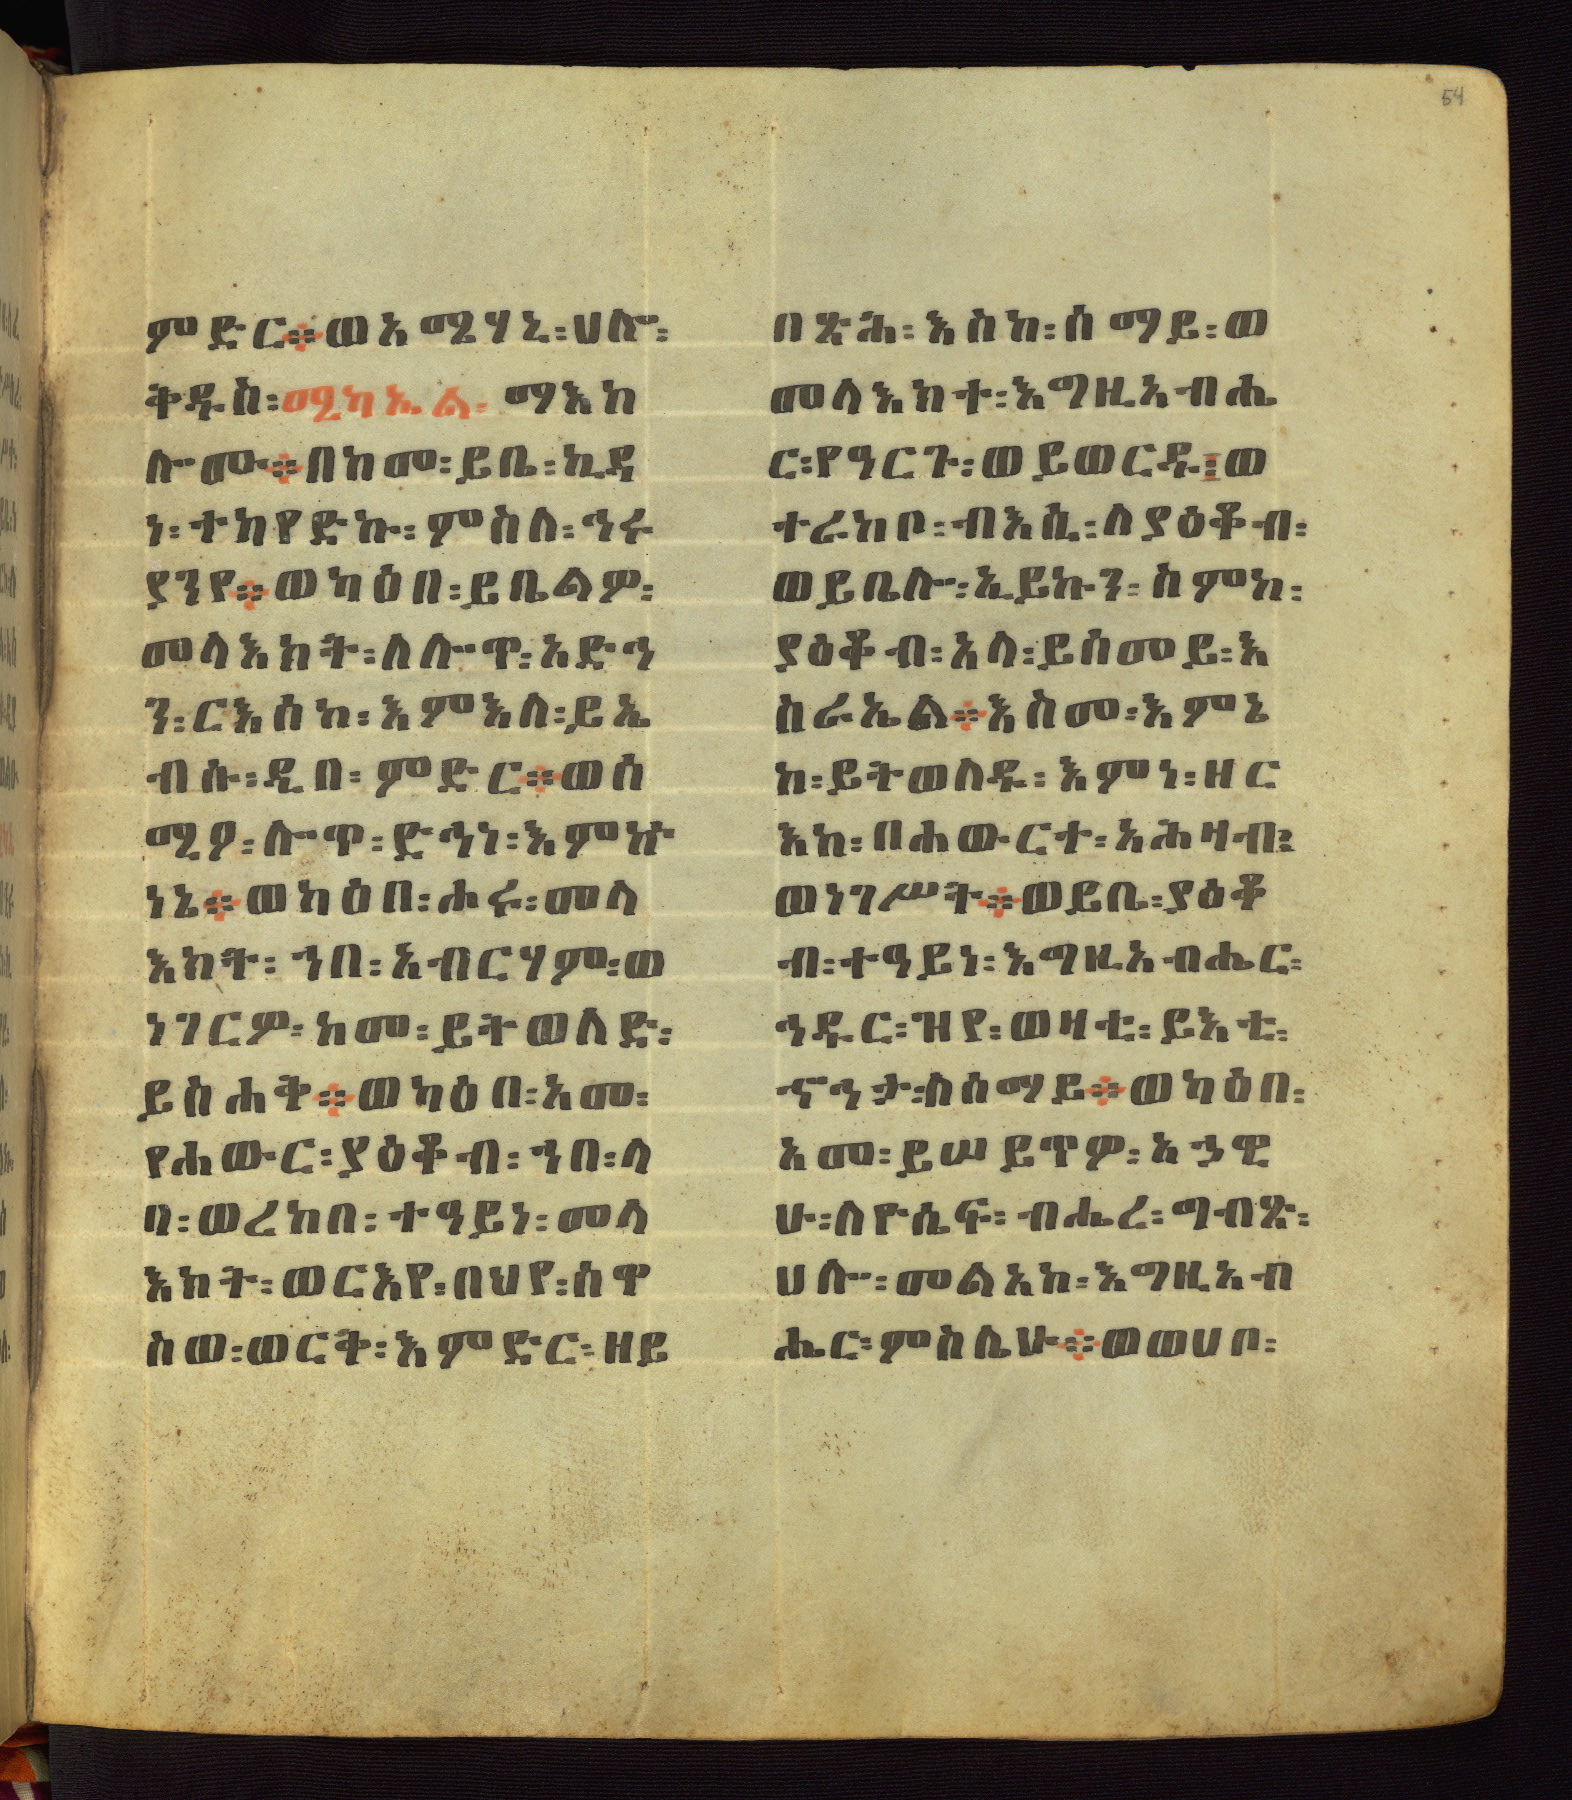 54
ምድር፨ወአሜሃኒ፡ሀሎ፡
ቅዱስ፡ሚካኤል፡ ማእከ
ሎሙ፨በከመ፡ይቤ፡ኪዳ
ነ፡ተከየድኩ፡ምስለ፡ኅሩ
ያንየ፨ወካዕበ፡ይቤልዎ፡
መላእክት፡ለሎጥ፡አድኅ
ን፡ርእስከ፡እምእለ፡ይኤ
ብሱ፡ዲበ፡ምድር፨ወሰ
ሚዖ፡ሎጥ፡ድኅነ፡እምኵ
ነኔ፨ወካዕበ፡ሐሩ፡መላ
እክት፡ኀበ፡አብርሃም፡ወ
ነገርዎ፡ከመ፡ይትወለድ፡
ይስሐቅ፨ወካዕበ፡አመ፡
የሐውር፡ያዕቆብ፡ኀበ፡ላ
ባ፡ወረከበ፡ተዓይነ፡መላ
እክት፡ወርእየ፡በህየ፡ሰዋ
ስው፡ወርቅ፡እምድር፡ዘይ
በጽሕ፡እስከ፡ሰማይ፡ወ
መላእክተ፡እግዚአብሔ
ር፡የዓርጉ፡ወይወርዱ፡ወ
ተራከቦ፡ብእሲ፡ለያዕቆብ፡
ወይቤሎ፡ኢይኩን፡ስምከ፡
ያዕቆብ፡አላ፡ይሰመይ፡እ
ስራኤል፨እስመ፡እምኔ
ከ፡ይትወለዱ፡እምነ፡ዘር
እከ፡በሐውርተ፡አሕዛብ፡
ወነገሥት፨ወይቤ፡ያዕቆ
ብ፡ተዓይነ፡እግዚአብሔር፡
ኅዱር፡ዝየ፡ወዛቲ፡ይእቲ፡
ኆኅታ፡ለሰማይ፨ወካዕበ፡
አመ፡ይሠይጥዎ፡አኃዊ
ሁ፡ለዮሴፍ፡ብሔረ፡ግብጽ፡
ሀሎ፡መልአከ፡እግዚአብ
ሔር፡ምስሌሁ፨ወወሀቦ፡